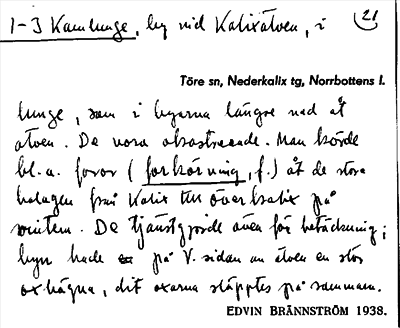 1-3 Kamlunge, by vid Kalixälven, i
21
Töre sn, Nederkalix tg, Norrbottens l.
lunge, som i byarna längre ned åt
älven. De voro okastrerade. Man körde
bl. a. foror (forkörning, f.) åt de stora
bolagen från Kalix till Överkalix på
vintern. De tjänstgjorde även för betäckning;
byn hade på V. sidan om älven en stor
oxhägna, dit oxarna släpptes på sommaren.
EDVIN BRÄNNSTRÖM 1938.